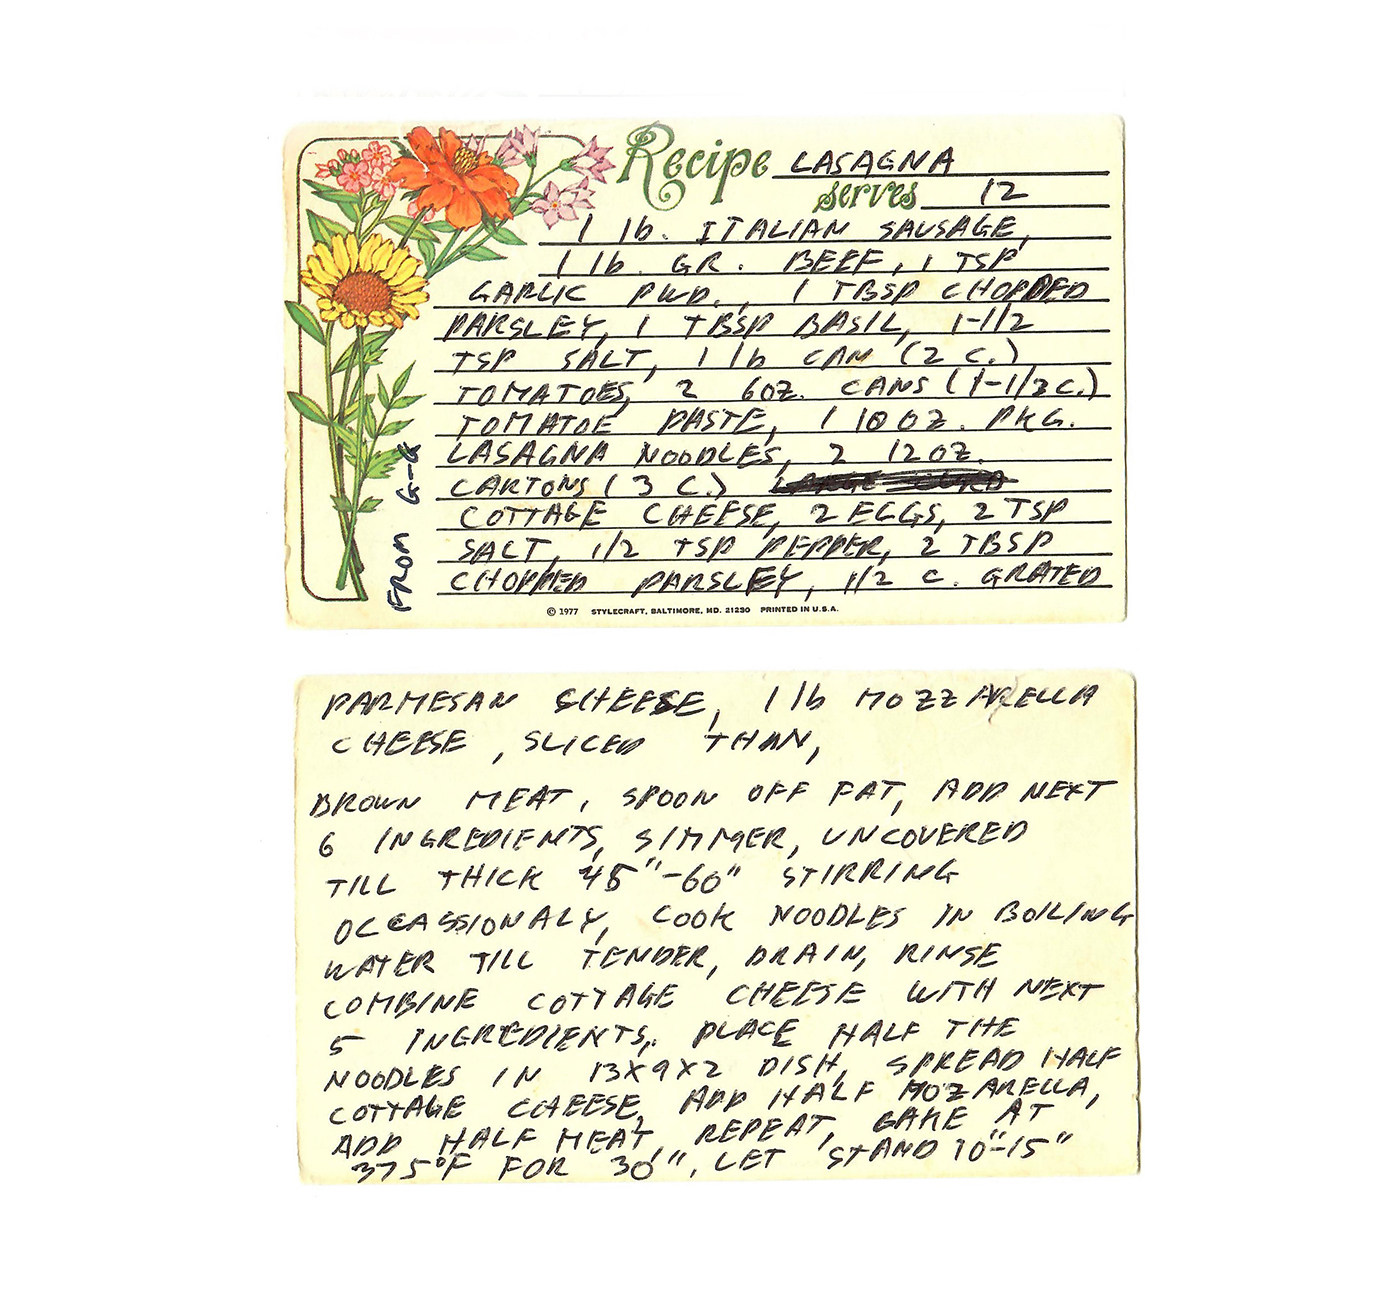 Recipe LASAGNA
serves 12
1 lb. ITALIAN SAUSAGE,
1 lb. GR. BEEF, 1 TSP
GARLIC PWD., 1 TBSP CHOPPED
PARSLEY, 1 TBSP BASIL, 1-1/2
TSP SALT, 1 lb CAN (2 C.)
TOMATOES, 2 6OZ. CANS (1-1/3 C.)
TOMATOE PASTE, 1 10 OZ. PKG.
LASAGNA NOODLES, 2 12 OZ.
CARTONS (3 C.)
COTTAGE CHEESE, 2 EGGS, 2 TSP
SALT, 1/2 TSP PEPPER, 2 TBSP
CHOPPED PARSLEY, 1/2 C. GRATED
FROM
© 1977 STYLECRAFT, BALTIMORE, MD. 21230 PRINTED IN U.S.A.
PARMESAN CHEESE, 1 lb MOZZARELLA
CHEESE, SLICED THAN,
BROWN MEAT, SPOON OFF FAT, ADD NEXT
6 INGREDIENTS, SIMMER, UNCOVERED
TILL THICK 45"-60" STIRRING
OCCASSIONALY, COOK NOODLES IN BOILING
WATER TILL TENDER, DRAIN, RINSE
COMBINE COTTAGE CHEESE WITH NEXT
5 INGREDIENTS,. PLACE HALF THE
NOODLES IN 13X9X2 DISH, SPREAD HALF
COTTAGE CHEESE, ADD HALF MOZARELLA,
ADD HALF MEAT, REPEAT, BAKE AT
375°F FOR 30", LET STAND 10"-15"